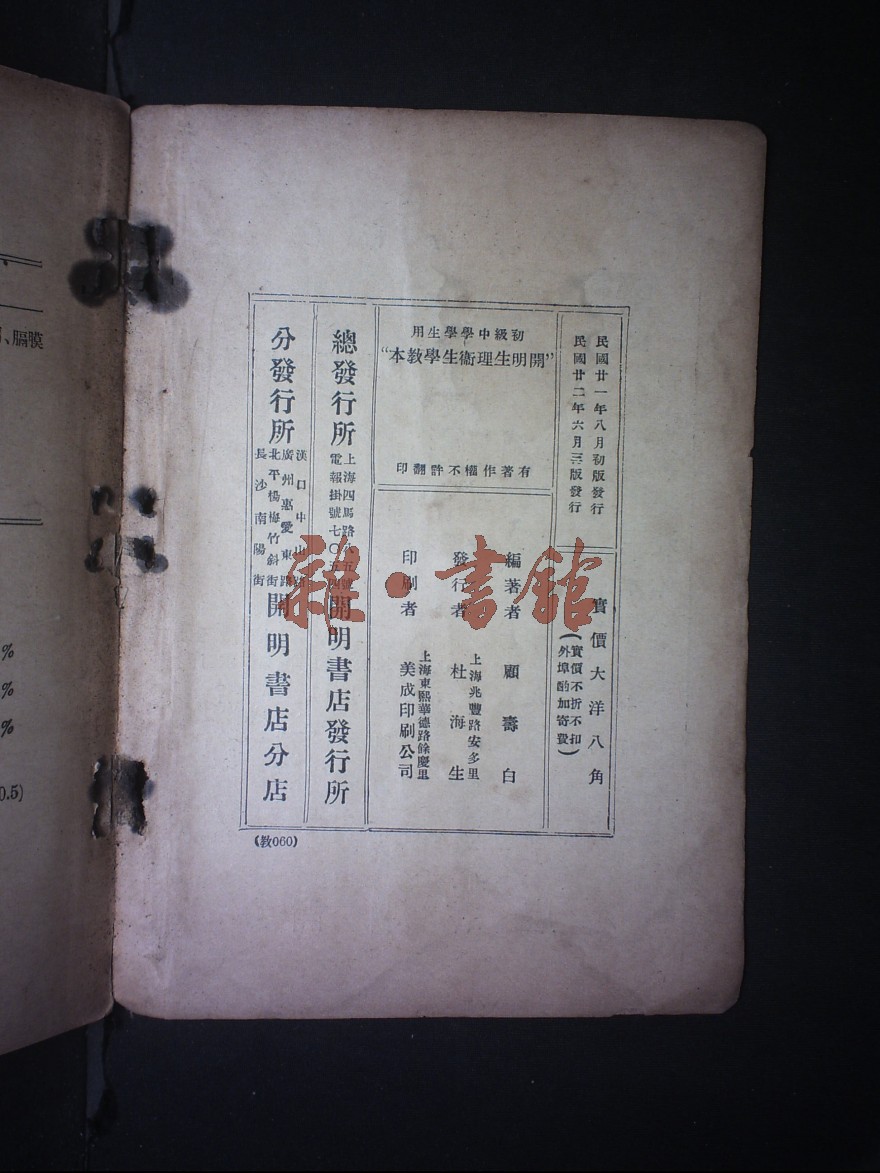 民國廿一年八月初版發行
民國廿二年六月三版發行
實價大洋八角
(實價不折不扣
外埠酌加寄費)
初級中學學生用
"開明生理衞生學教本"
有著作權不許翻印
編著者 顧壽白
發行者 杜海生
上海兆豐路安多里
印刷者 美成印刷公司
上海東熙華德路餘慶里
總發行所
上海四馬路
電報掛號七〇五四
開明書店發行所
分發行所
漢口中山路
廣州惠愛東路
北平楊梅竹斜街
長沙南陽街
開明書店分店
(教060)
雜·書館
、膈膜
%
%
%
0.5)